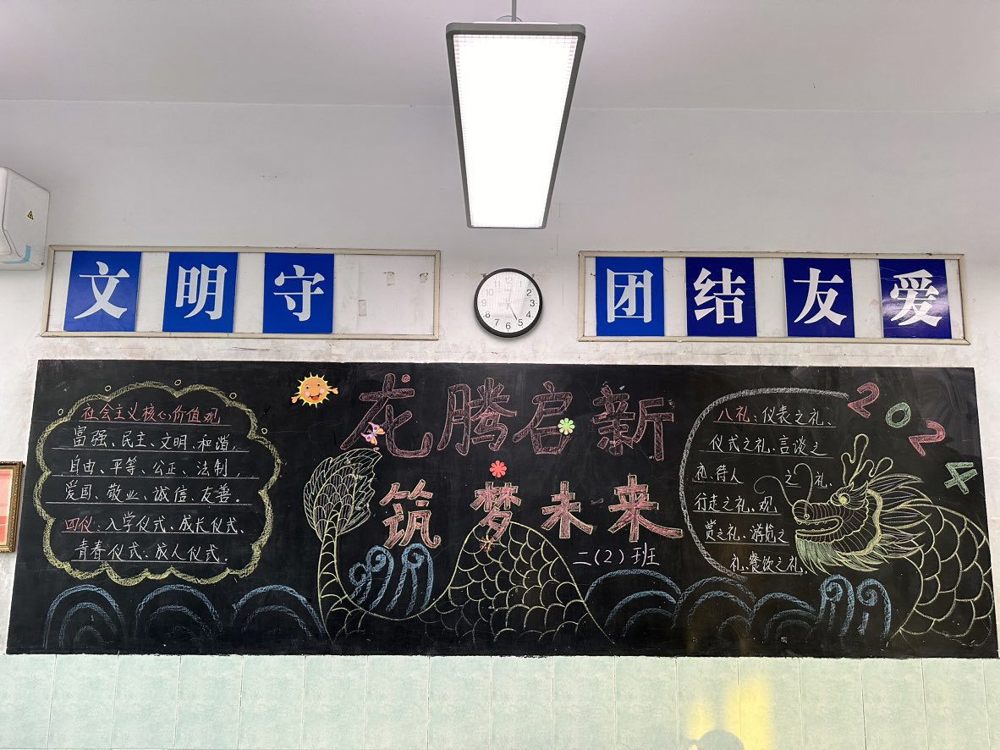 文明守
团结友爱
社会主义核心价值观
富强、民主、文明、和谐，
自由、平等、公正、法制，
爱国、敬业、诚信、友善。
四仪：入学仪式、成长仪式、
青春仪式、成人仪式。
龙腾启新
筑梦未来
二(2)班
八礼：仪表之礼、
仪式之礼、言谈之
礼、待人之礼、
行走之礼、观
赏之礼、游览之
礼、餐饮之礼。
2024
12
1
2
3
4
5
6
7
8
9
10
11